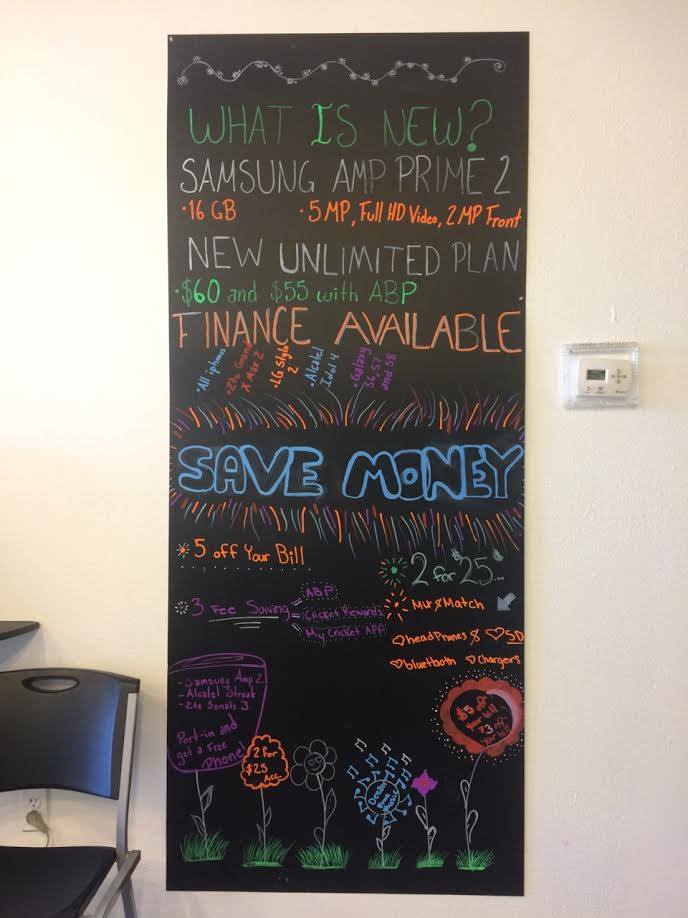 WHAT IS NEW?
SAMSUNG AMP PRIME 2
•16 GB •5 MP, Full HD Video, 2 MP Front
NEW UNLIMITED PLAN
•$60 and $55 with ABP
FINANCE AVAILABLE
•All iphones
•Zte Grand
X Max 2
•LG Stylo
2
•Alcatel
Idol 4
•Galaxy
S6, S7
and S8
SAVE MONEY
5 off Your Bill
3 Fee Saving
ABP
Cricket Rewards
My Cricket APP
2 for $25...
Mix & Match
headphones & SD
bluetooth Chargers
- Samsung Amp 2
- Alcatel Streak
- Zte Sonata 3
Port-in and
get a Free
Phone!
2 For
$25
Acc.
Deezer
Free
Music
$5 off
Your bill
$3 off
Your bill